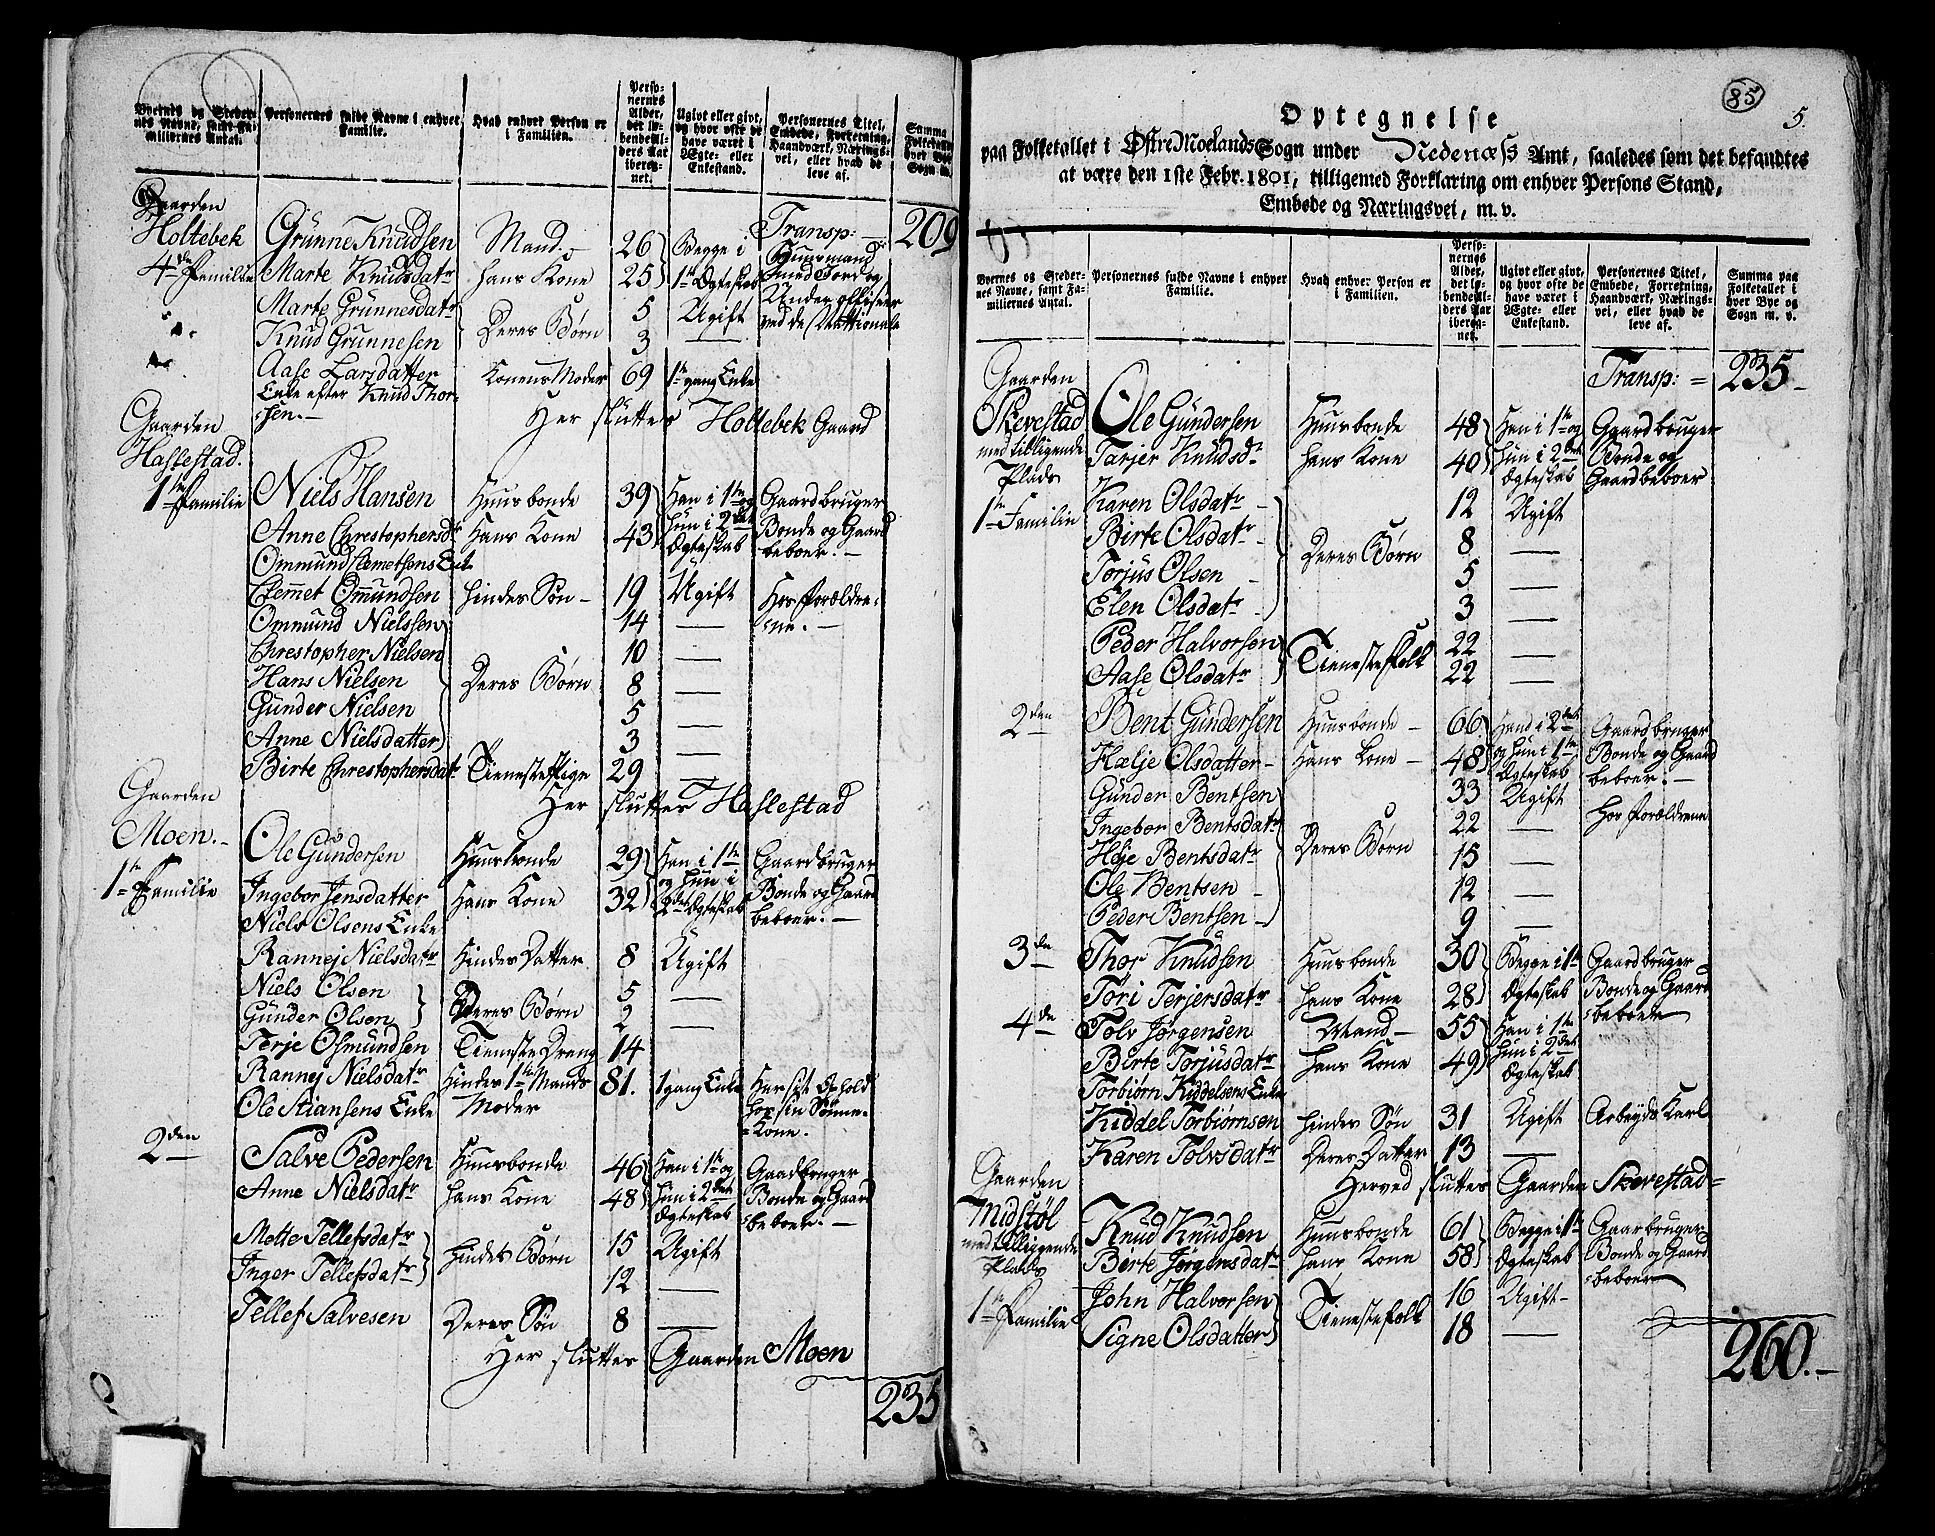 Byernes og Stedernes Navne, samt Familiernes Antal. | Personernes fulde Navne i enhver Familie. | Hvad enhver Person er i Familien. | Personernes Alder, det løbende Alders Aar iberegnet. | Ugivt eller givt, og hvor ofte de have været i Ægte- eller Enkestand. | Personernes Titel, Embede, Forretning, Haandværk, Næringsvei, eller hvad de leve af. | Summa Folketallet hver Bye Sogn m.
Gaarden
Holtebek
4de Familie
Transp: 209
Grünne Knudsen Mand 26 Begge i Huusmand
Marte Knudsdatr hans Kone 25 1te Ægteskab med Jord og
Marte Grünnesdatr 5 Ugift Under officeer
Deres Børn
Knud Grunnesen 3 — ved de Nattionale
Aase Larsdatter Konens Moder 69 1te gang Enke
Enke efter Knud Thor-
sen.
Her slutter Holtebek Gaard
Gaarden
Haslestad.
1te Familie
Niels Hansen Huusbonde 39 Han i 1te og Gaardbruger
Anne Chrestophersdr Hans Kone 43 hun i 2det Bonde og Gaard
Ommund Clemetsens Enke Ægteskab beboer.
Clemmet Ommundsen hindes Søn 19 Ugift Hos Forældre-
Ommund Nielssen 14 — ne.
Chrestopher Nielsen 10 —
Hans Nielsen Deres Børn 8 —
Gunder Nielsen 5 —
Anne Nielsdatter 3 —
Birte Chrestophersdatr TienestePige 29 —
Her slutter Haslestad
Gaarden
Moen.
1te Familie
Ole Gundersen Huusbonde 29 Han i 1te Gaardbruger
Ingebor Jensdatter hans Kone 32 og hun i Bonde og Gaard
Niels Olsens Enke 2det Ægteskab beboer.
Rannej Nielsdatr hindes Datter 8 Ugift
Niels Olsen 5 —
Deres Børn
Gunder Olsen 2 —
Terje Osmundsen TienesteDreng 14
Rannej Nielsdatr hindes 1te Mands 81. 1 gang Enke Har sit Ophold
Ole Stiansens Enke Moder hos sin Sønne-
Kone.
2den
Salve Pedersen Huusbonde 46 Han i 1te og Gaardbruger
Anne Nielsdatr hans Kone 48 hun i 2det Bonde og Gaard
Ægteskab beboer.
Mette Tellefsdatr 15 Ugift
hindes Børn
Inger Tellefsdatr 12 —
Tellef Salvesen Deres Søn 8 —
Her slutter Gaarden Moen
235
85
5.
Optegnelse
paa Folketallet i Østre Moelands Sogn under Nedenæss Amt, saaledes som det befandtes
at være den 1ste Febr. 1801, tilligemed Forklaring om enhver Persons Stand,
Embede og Næringsvei, m. v.
Byernes og Stedernes Navne, samt Familiernes Antal. | Personernes fulde Navne i enhver Familie. | Hvad enhver Person er i Familien. | Personernes Alder, det løbende Alders Aar iberegnet. | Ugivt eller givt, og hvor ofte de have været i Ægte- eller Enkestand. | Personernes Titel, Embede, Forretning, Haandværk, Næringsvei, eller hvad de leve af. | Summa paa Folketallet i hver Bye og Sogn m. v.
Transp: = 235
Gaarden
Skevestad
med tilligende
Plads
1te Familie
Ole Gündersen Huusbonde 48 Han i 1te og Gaardbruger
Tarjer Knudsdr hans Kone 40 hun i 2det Bonde og
Ægteskab Gaardbeboer
Karen Olsdatr 12 Ugift
Birte Olsdatr 8 —
Deres Børn
Torjus Olsen 5 —
Elen Olsdatr 3 —
Peder Halvorsen 22 —
Tienestefolk
Aase Olsdatr 22 —
2den
Bent Gündersen Huusbonde 66 Hand i 2det Gaardbruger
Hælje Olsdatter hans Kone 48 og hun i 1te Bonde og Gaard
Ægteskab beboer.
Gunder Bentsen 33 Ugift hos Forældrene
Ingebor Bentsdatr 22 —
Helje Bentsdatr Deres Børn 15 —
Ole Bentsen 12 —
Peder Bentsen 9 —
3de
Thor Knudsen Huusbonde 30 Begge i 1te Gaardbruger
Tori Terjersdatr hans Kone 28 Ægteskab Bonde og Gaard
beboer
4de
Tolv Jørgensen Mand 55 Han i 1te
Birte Torjusdatr hans Kone 49 hun i 2det
Torbiørn Kiddelsens Enke Ægteskab
Kiddel Torbiørnsen hindes Søn 31 Ugift Arbeyds Karl
Karen Tolvsdatr Deres Datter 13 —
Herved slutter Gaarden Skevestad
Gaarden
Midstøl
med tilliggende
Plads
1te Familie
Knud Knudsen Huusbonde 61 Begge i 1te Gaarbruger
Birte Jørgensdatr hans Kone 58 Ægteskab Bonde og Gaard
beboer
John Halvorsen 16 Ugift
Tienestefolk
Signe Olsdatter 18 —
260.